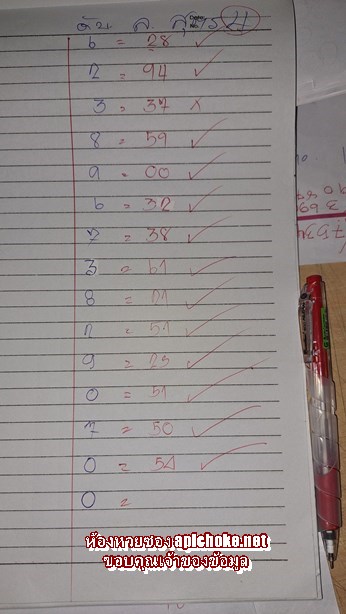 ต้น ล. สูตร น
6 = 28 ✓
2 = 94 ✓
3 = 37 ✗
8 = 59 ✓
9 = 00 ✓
6 = 32 ✓
7 = 38 ✓
3 = 61 ✓
8 = 21 ✓
2 = 51 ✓
9 = 25 ✓
0 = 51 ✓
7 = 50 ✓
0 = 54 ✓
0 =
ห้องหวยซอง aplchoke.net
ขอบคุณเจ้าของข้อมูล